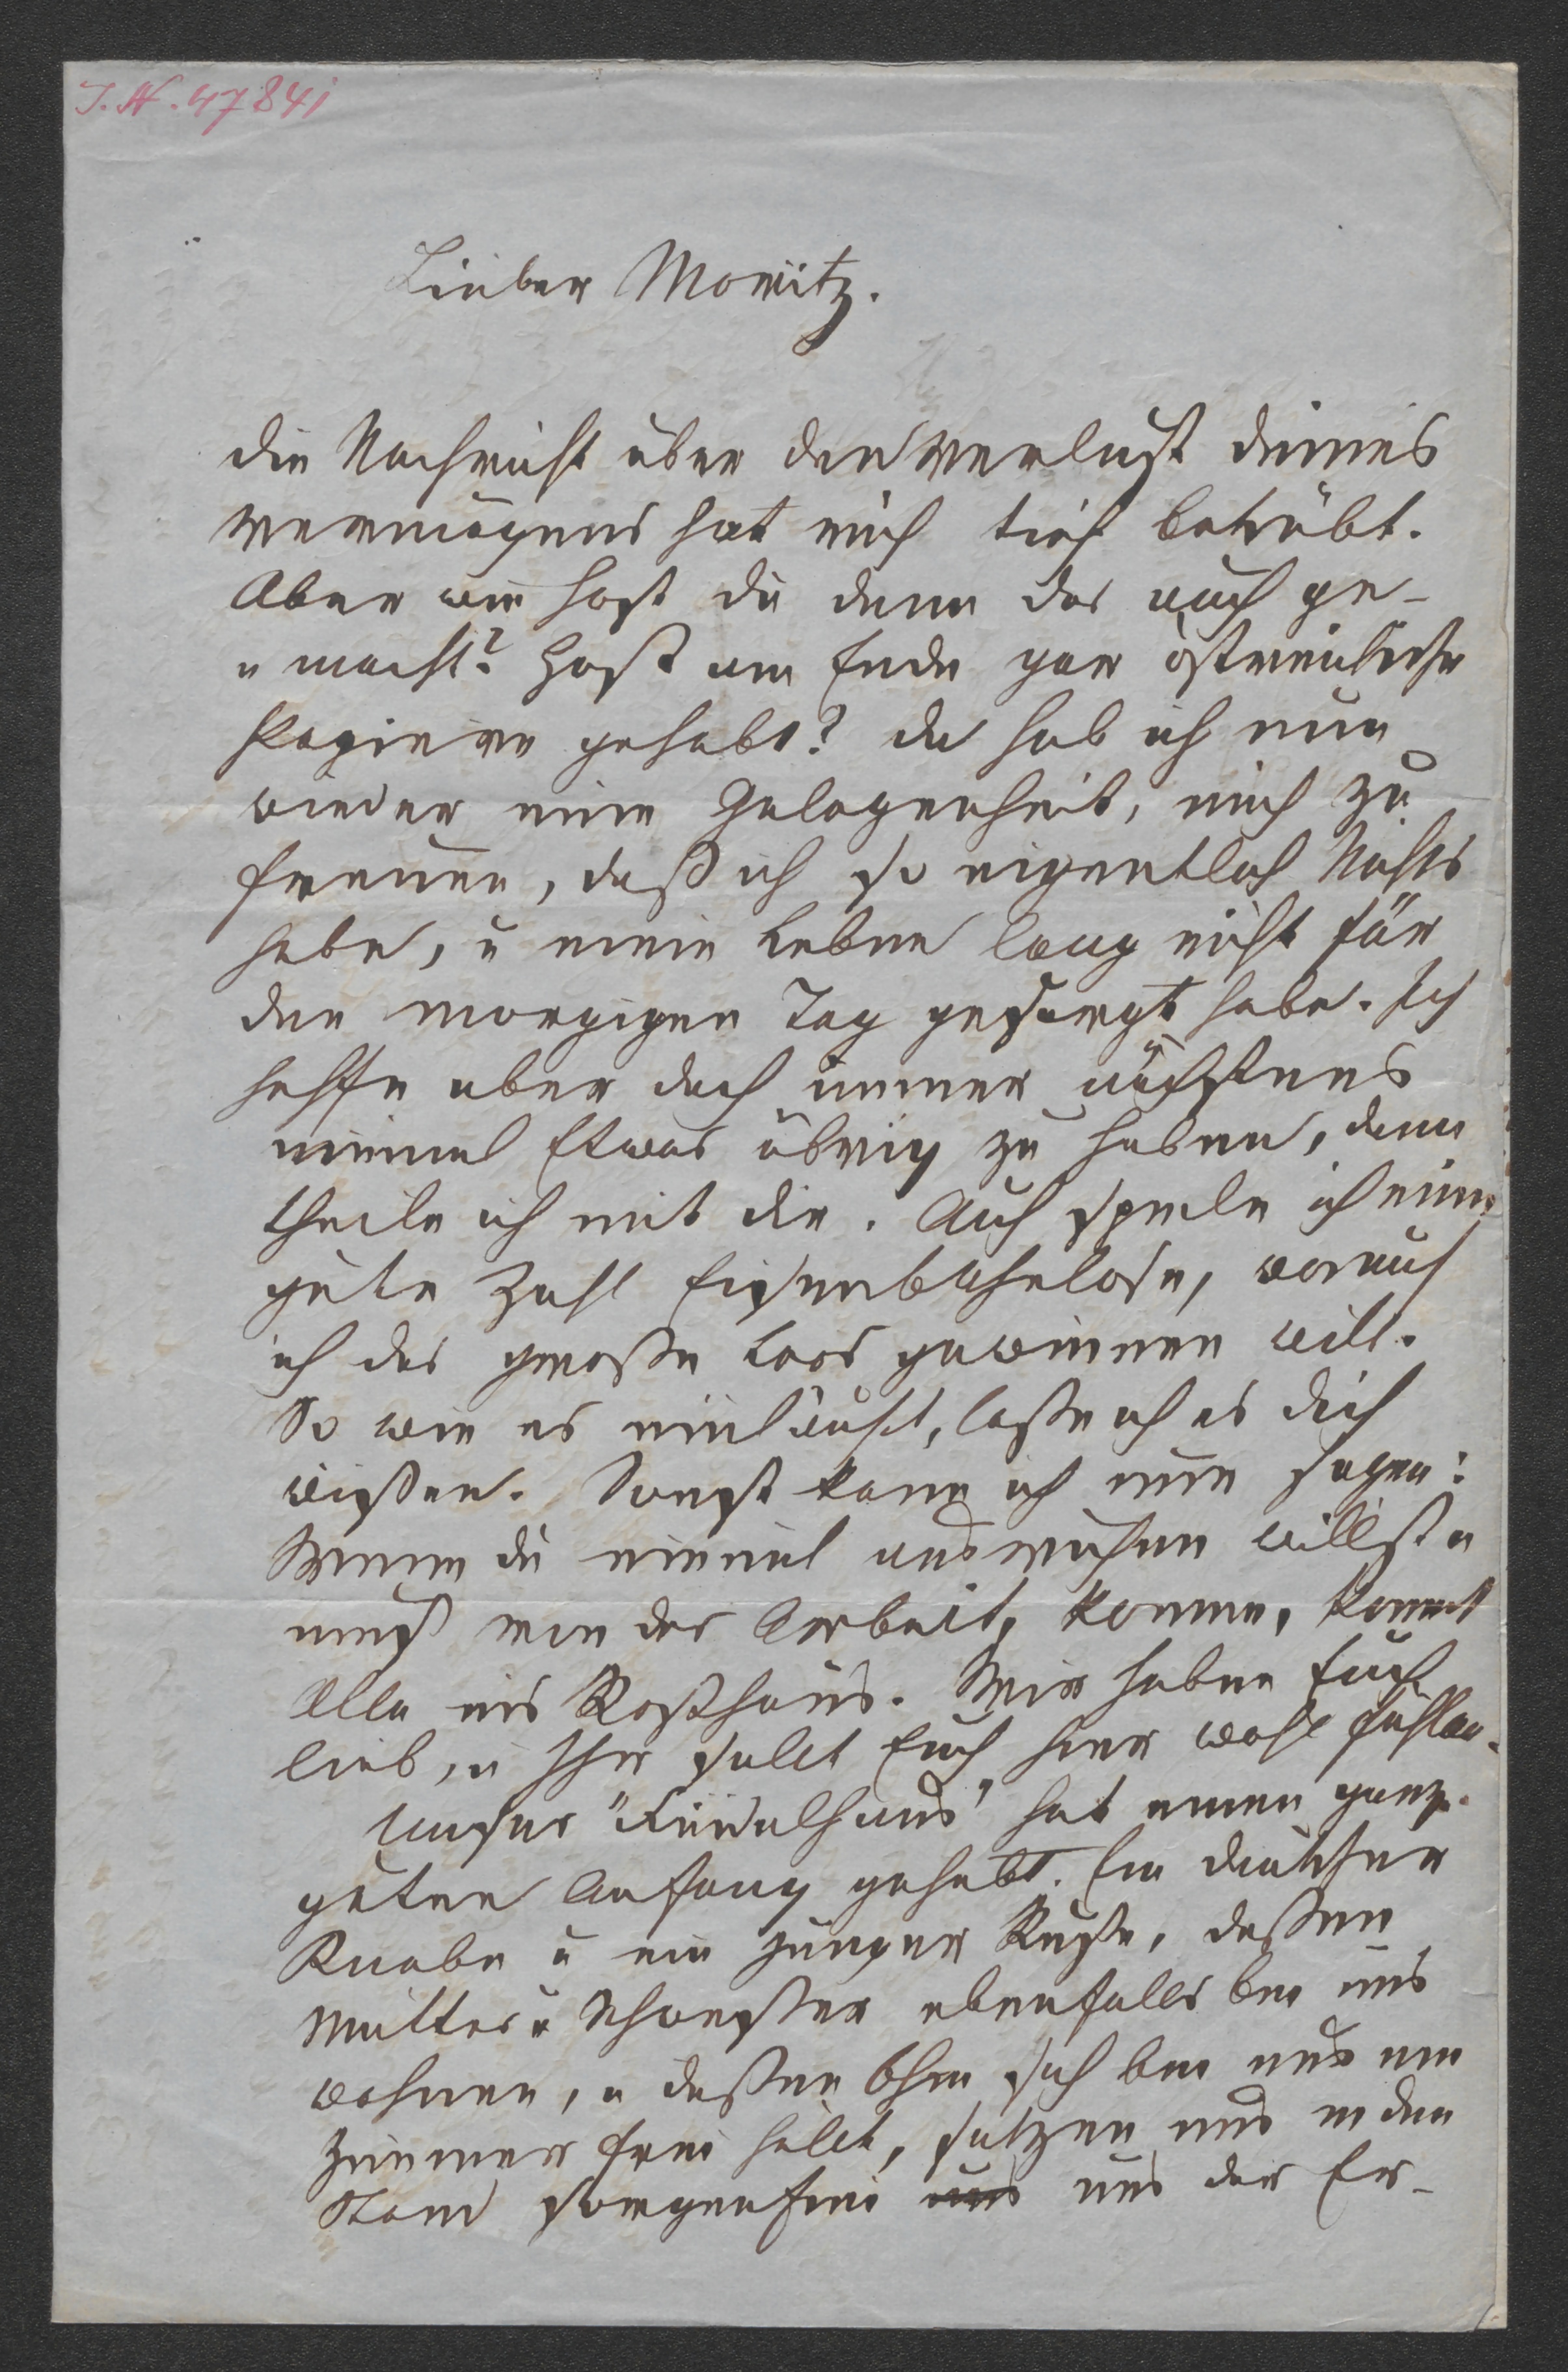 I. N. 47841
Lieber Moritz.
die Nachricht über den Verlust deines
Vermögens hat mich tief betrübt.
Aber wie hast du denn das auch ge-
macht? Hast am Ende gar östreichische
Papiere gehabt? da hab ich nun
wieder eine Gelegenheit, mich zu
freuen, daß ich so eigentlich Nichts
habe, u mein Leben lang nicht für
den morgigen Tag gesorgt habe. Ich
hoffe aber doch immer nächstens
einmal Etwas übrig zu haben, dann
theile ich mit dir. Auch spiele ich eine
gute Zahl Eisenbahnlose, woraus
ich das große Loos gewinnen will.
So wie es einläuft, lasse ich es dich
wissen. Sonst kann ich nur sagen:
Wenn du einmal ausruhen willst u
mußt von der Arbeit, komme, kommt
Alle ins Rosthaus. Wir haben Euch
lieb, u Ihr sollt Euch hier wohl fühlen.
Unser hat einen ganz
guten Anfang gehabt. Ein deutscher
Knabe u ein junger Russe, dessen
Mutter u Schwester ebenfalls bei uns
wohnen, u dessen Ohm sich bei uns ein
Zimmer frei hält, setzen uns in den
Stand sorgenfrei uns uns der Er-